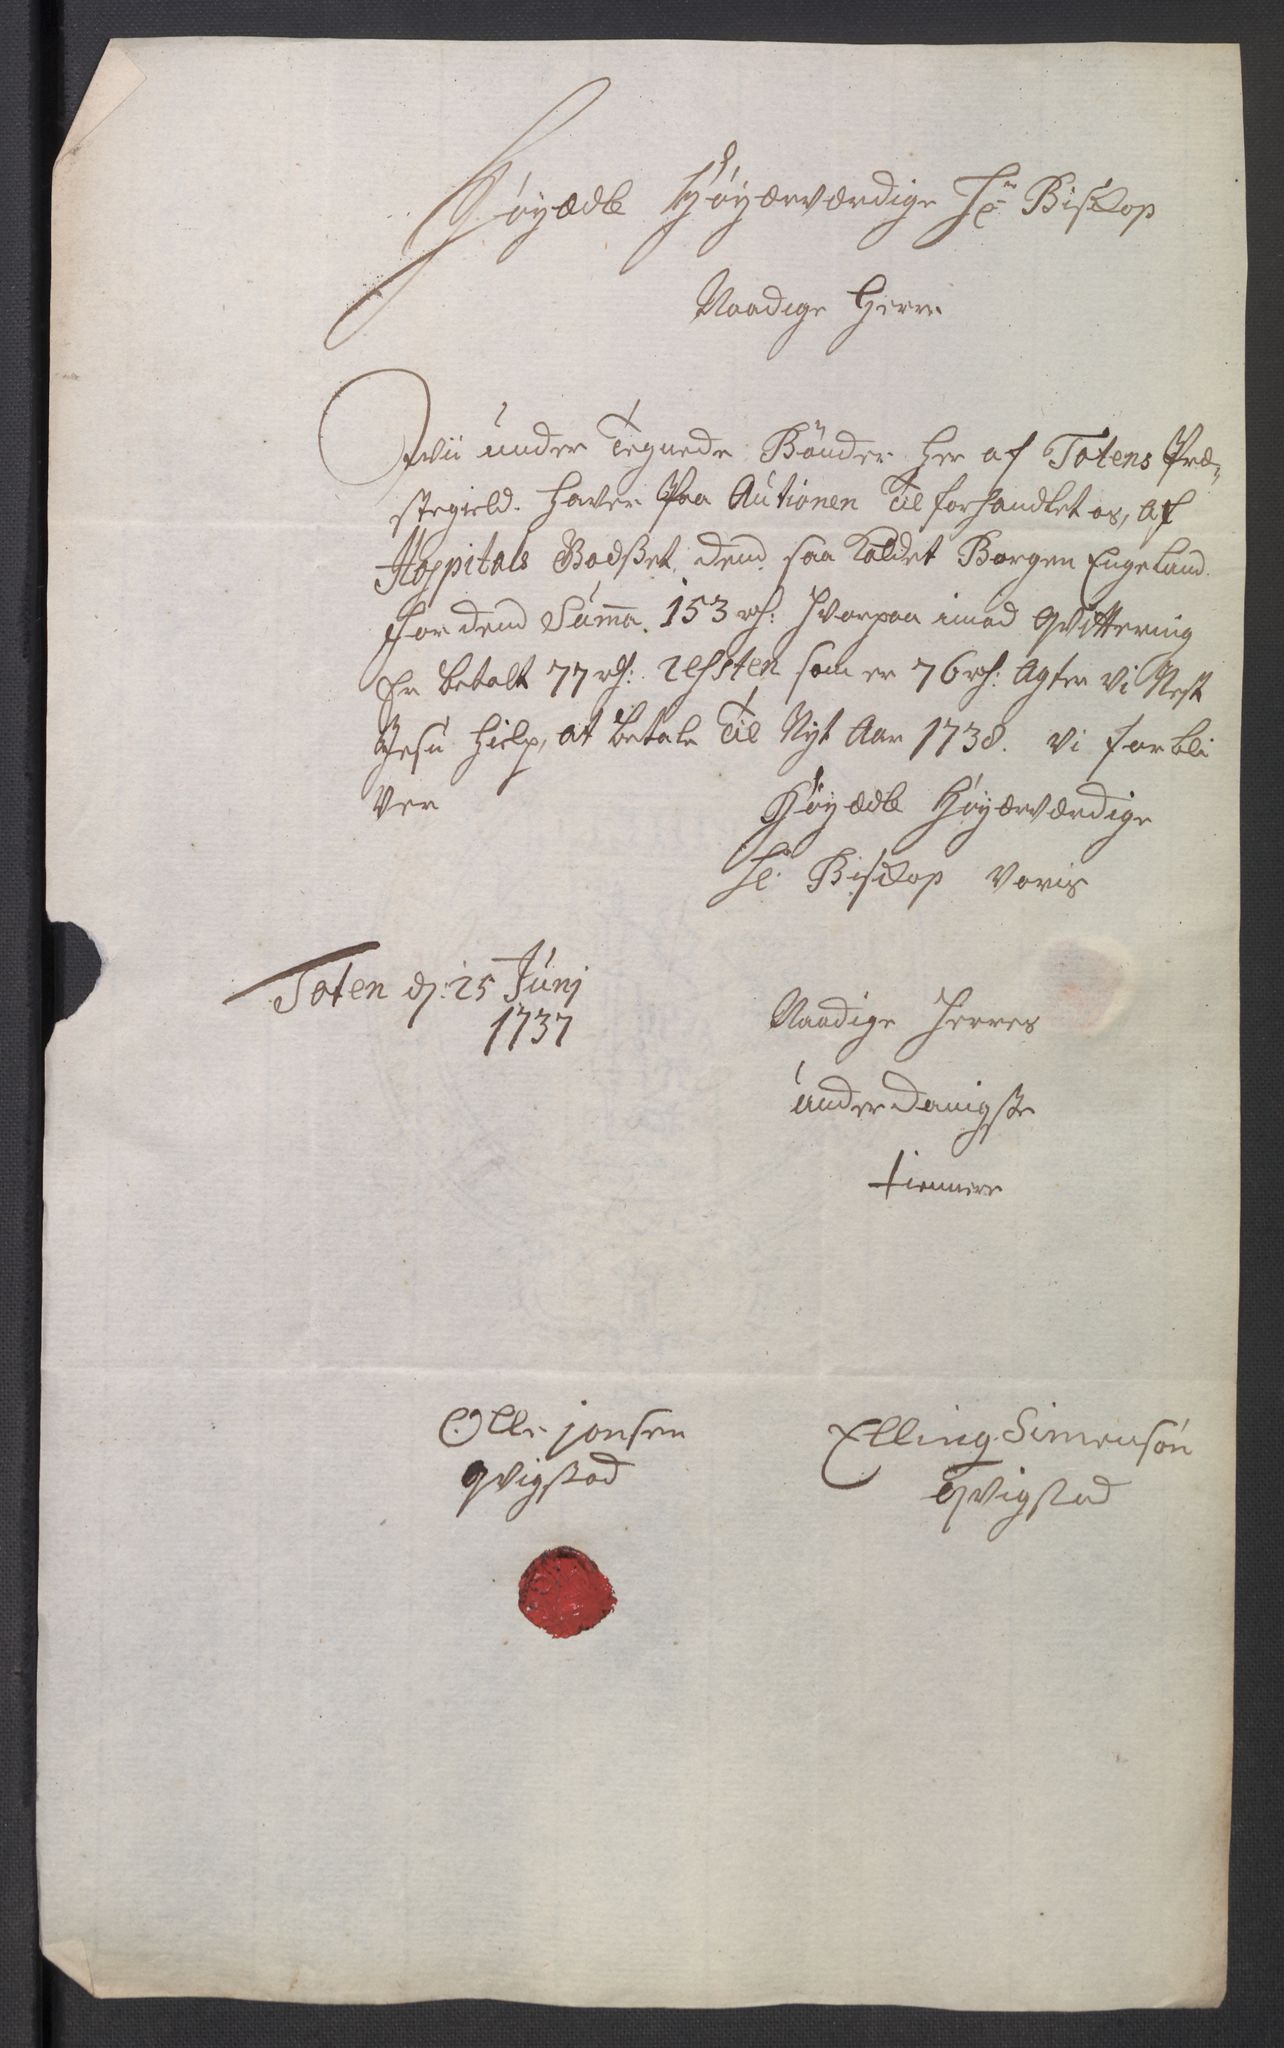 Höyædle Höyærværdige Hr Biskop
Naadige Herre
Wii under Tegnede Bönder her af Totens Præ-
stegield. haver Paa Autionen Til forhandlet os, af
Hoppitals Godßet, dend saa kaldet Borgen Engeland.
for dend Suma. 153 rd: hvorpaa imod Qvittering
Er betalt 77 rd: resten som er 76 rd: Agter vi Nest
Jesu hielp, at betale Til Nyt Aar 1738. vi forbli
ver
Höyædle Höyærværdige
Hr Biskop Voris
Toten d: 25 Junj
1737
Naadige Herres
underdanigste
tiennere
Olle jonsen
qvigstad
Elling Simensön
Qvigstad